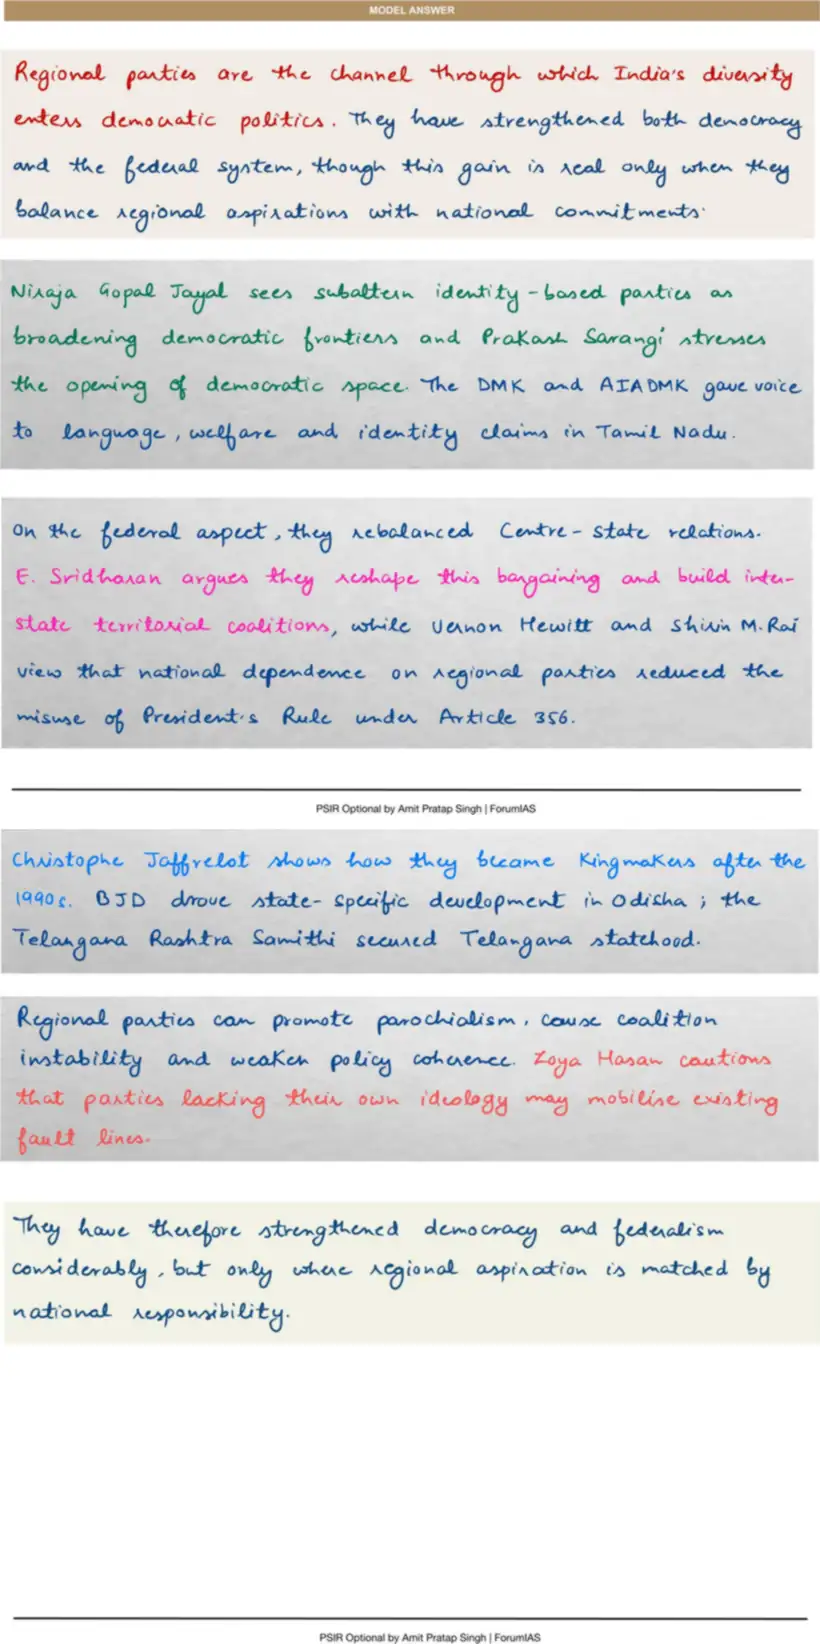 MODEL ANSWER
Regional parties are the channel through which India's diversity
enters democratic politics. They have strengthened both democracy
and the federal system, though this gain is real only when they
balance regional aspirations with national commitments.
Niraja Gopal Jayal sees subaltern identity-based parties as
broadening democratic frontiers and Prakash Sarangi stresses
the opening of democratic space. The DMK and AIADMK gave voice
to language, welfare and identity claims in Tamil Nadu.
On the federal aspect, they rebalanced Centre-state relations.
E. Sridharan argues they reshape this bargaining and build inter-
state territorial coalitions, while Vernon Hewitt and Shirin M. Rai
view that national dependence on regional parties reduced the
misuse of President's Rule under Article 356.
PSIR Optional by Amit Pratap Singh | ForumIAS
Christophe Jaffrelot shows how they became Kingmakers after the
1990s. BJD drove state-specific development in Odisha; the
Telangana Rashtra Samithi secured Telangana statehood.
Regional parties can promote parochialism, cause coalition
instability and weaken policy coherence. Zoya Hasan cautions
that parties lacking their own ideology may mobilise existing
fault lines.
They have therefore strengthened democracy and federalism
considerably, but only where regional aspiration is matched by
national responsibility.
PSIR Optional by Amit Pratap Singh | ForumIAS